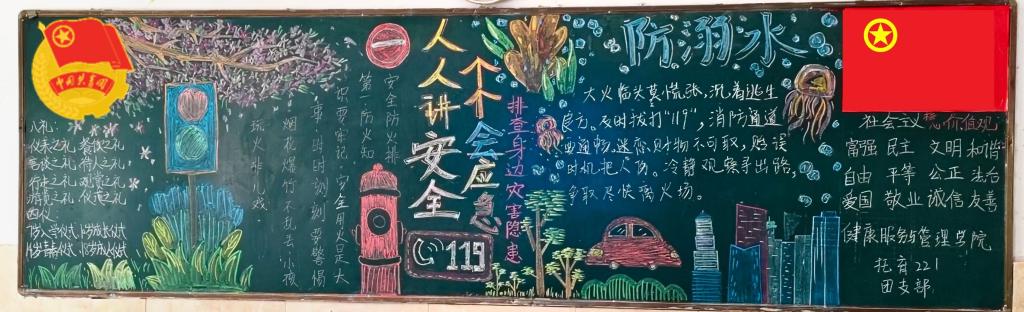 中国共青团
八礼:
仪表之礼, 餐饮之礼
言谈之礼, 待人之礼
行走之礼, 观赏之礼
游览之礼, 仪式之礼
四仪:
7岁入学仪式, 10岁成长仪式
14岁青春仪式, 18岁成人仪式
安全防火排第一, 防火知识要牢记
安全用火是大事, 时时刻刻要警惕
烟花爆竹不乱去, 小孩玩火非儿戏.
人人讲安全
个个会应急
排查身边灾害隐患
119
防溺水
大火临头莫慌张, 沉着逃生
良方。及时拨打"119", 消防通道
要通畅, 迷恋财物不可取, 贻误
时机把人伤。冷静观察寻出路,
争取尽快离火场。
社会主义价值观
富强 民主 文明 和谐
自由 平等 公正 法治
爱国 敬业 诚信 友善
健康服务与管理学院
托育221
团支部